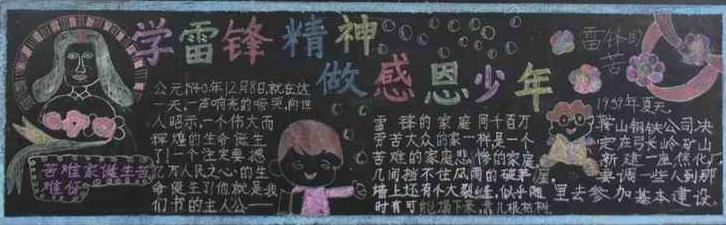 学雷锋精神
做感恩少年
公元1940年12月8日,就在这
一天,一声响亮的啼哭,向世
人昭示,一个伟大而
辉煌的生命诞生
了!一个注定要撼
亿万人民之心的生
命诞生了!他就是我
们书的主人公——
苦难家诞生苦
难份
雷锋的家庭同千百万
劳苦大众的家一样是一个
苦难的家庭悲惨的家庭
几间挡不住风雨的破茅屋,
墙上还有个大裂缝,似乎随
时有可能塌下来,几根枯树
雷锋的
苦
1959年夏天,
鞍山钢铁公司决
定在弓长岭矿山
新建一座焦化
要调一些人到那
里去参加基本建设